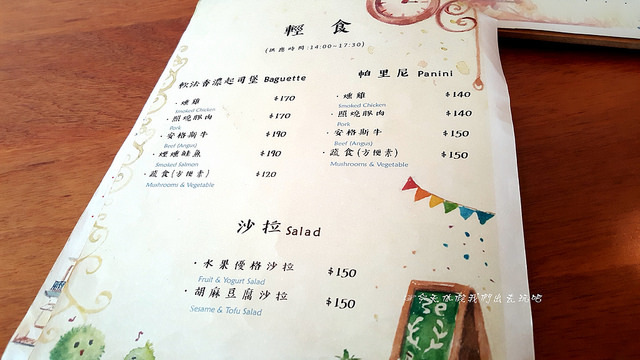 輕食
(供應時間:14:00~17:30)
軟法香濃起司堡 Baguette
・燻雞 $170
Smoked Chicken
・照燒豚肉 $170
Pork
・安格斯牛 $190
Beef (Angus)
・煙燻鮭魚 $190
Smoked Salmon
・蔬食(方便素) $120
Mushrooms & Vegetable
帕里尼 Panini
・燻雞 $140
Smoked Chicken
・照燒豚肉 $140
Pork
・安格斯牛 $150
Beef (Angus)
・蔬食(方便素) $150
Mushrooms & Vegetable
沙拉 Salad
・水果優格沙拉 $150
Fruit & Yogurt Salad
・胡麻豆腐沙拉 $150
Sesame & Tofu Salad
今天休假我們出去玩吧